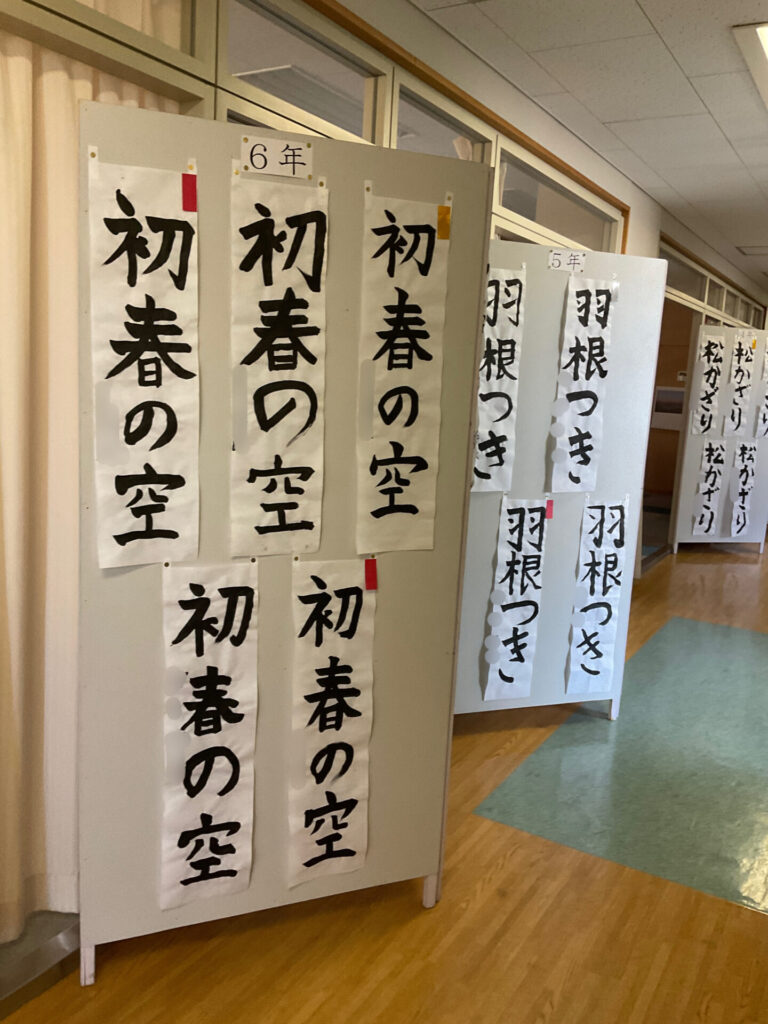 6年
初春の空
初春の空
初春の空
初春の空
初春の空
5年
羽根つき
羽根つき
羽根つき
羽根つき
松かざり
松かざり
松かざり
松かざり